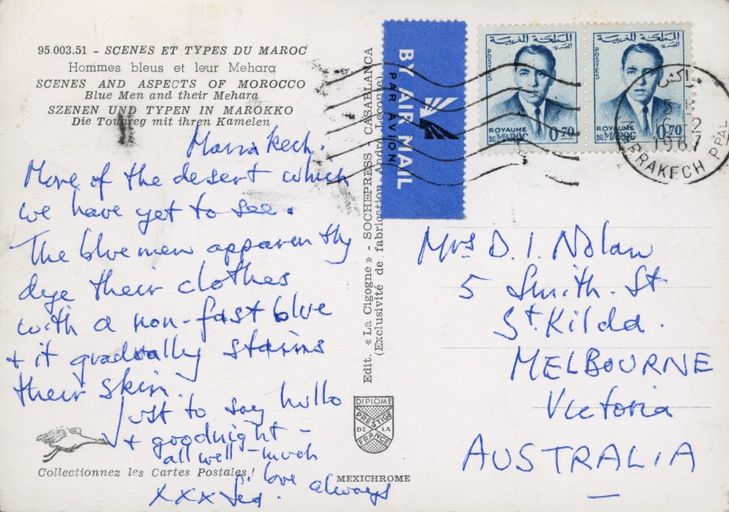 95 003.51 - SCENES ET TYPES DU MAROC
Hommes bleus et leur Mehara
SCENES AND ASPECTS OF MOROCCO
Blue Men and their Mehara
SZENEN UND TYPEN IN MAROKKO
Die Touareg mit ihren Kamelen
Marrakech.
More of the desert which
we have yet to see.
The blue men apparently
dye their clothes
with a non-fast blue
+ it gradually stains
their skin.
Just to say hullo
+ goodnight -
all well - much
love always
xxx
Collectionnez les Cartes Postales !
Edit. « La Cigogne » - SOCHEPRESS - CASABLANCA
(Exclusivité de fabrication André Leconte)
DIPLOME
PRESTIGE
DE LA
FRANCE
MEXICHROME
BY AIR MAIL
PAR AVION
المملكة المغربية
POSTES
ROYAUME
DU MAROC
0,70
المملكة المغربية
POSTES
ROYAUME
DU MAROC
0,70
مراكش
1967
MARRAKECH PPAL
Mrs D. I. Nolan
5 Smith. St
St. Kilda.
MELBOURNE
Victoria
AUSTRALIA